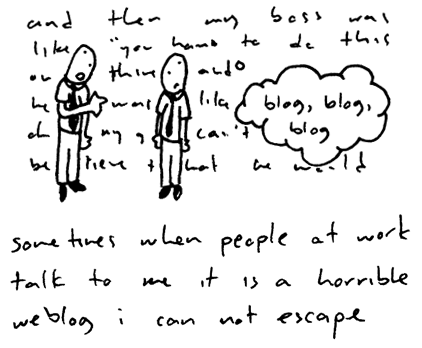 and then my boss was
like "you have to do this
on
he was like
oh my g can't
be lieve that he would
blog, blog,
blog
sometimes when people at work
talk to me it is a horrible
weblog i can not escape